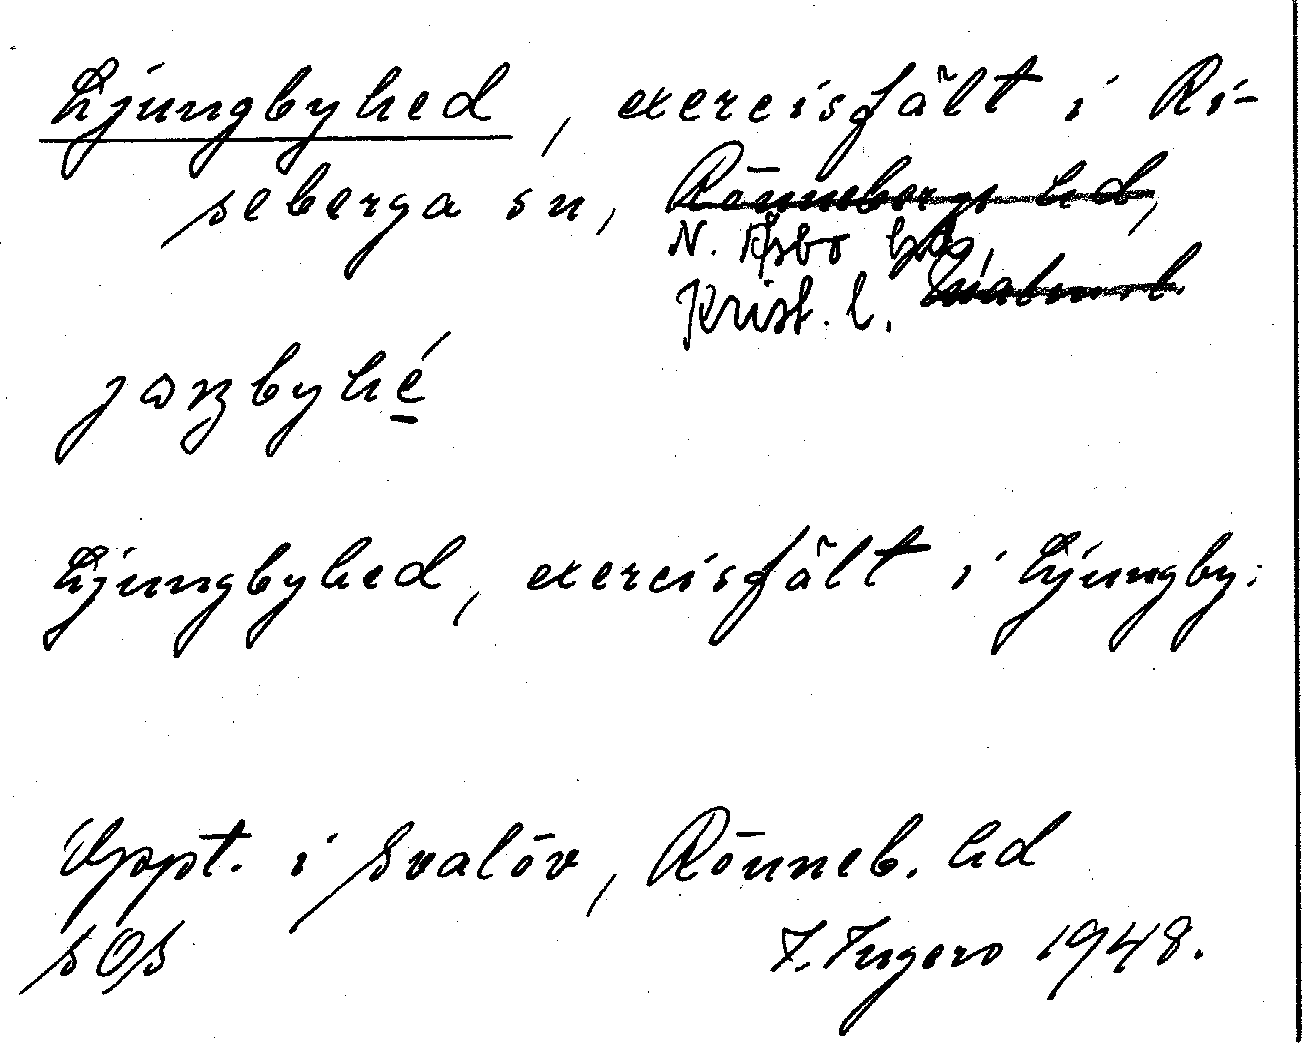 Ljungbyhed, exercisfält i Ri-
seberga sn, Rönnebergs hd,
N. Åsbo hd,
Krist. l. Malmöh l.
jɷŋbyhé
Ljungbyhed, exercisfält i Ljungby:
Uppt. i Svalöv, Rönneb. hd
SOS I. Ingers 1948.